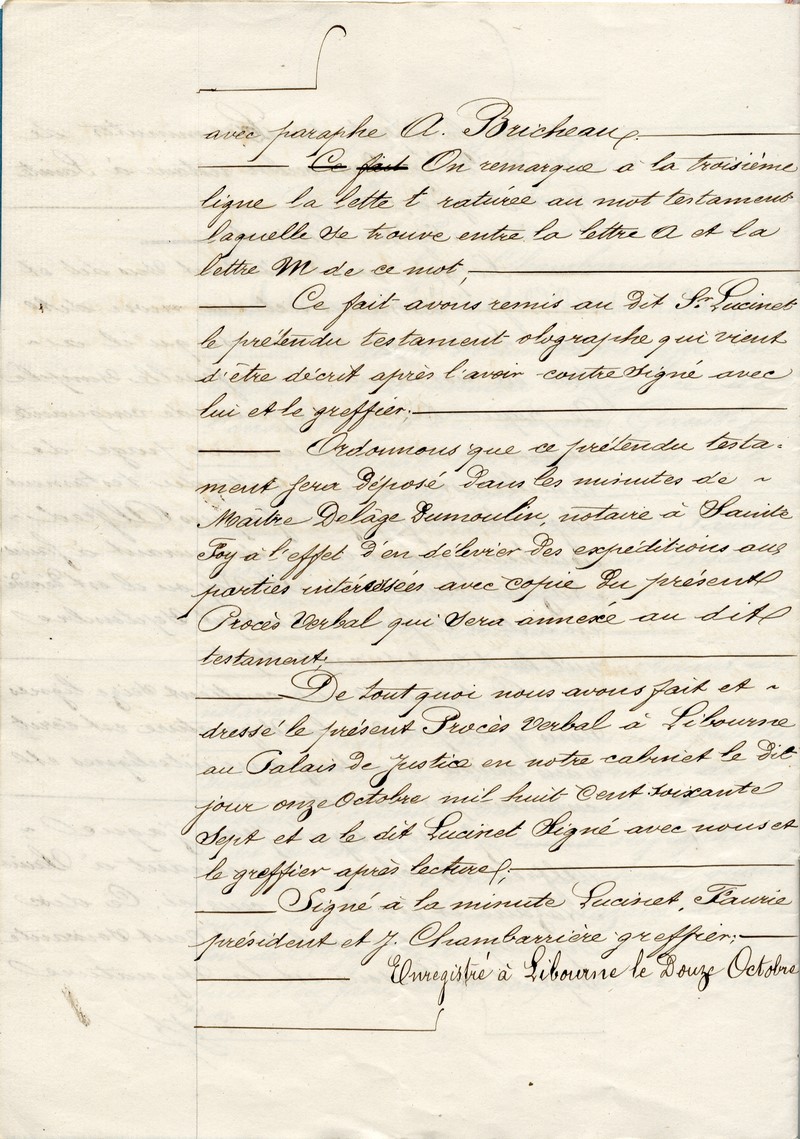 avec paraphe A. Bricheau.
Ce fait On remarque a la troisième
ligne la lette t raturée au mot testament
laquelle se trouve entre la lettre A et la
lettre M de ce mot,
Ce fait avons remis au dit Sr. Lucinet
le prétendu testament olographe qui vient
d'être décrit après l'avoir contre signé avec
lui et le greffier;
Ordonnons que ce prétendu testa-
ment sera déposé dans les minutes de ~
Maître Delâge Dumoulin, notaire à Sainte
Foy à l'effet d'en délevrier des expéditions aux
parties intéressées avec copie du présent
Procès Verbal qui sera annexé au dit
testament;
De tout quoi nous avons fait et ~
dressé le présent Procès Verbal à Libourne
au Palais de Justice en notre cabinet le dit
jour onze Octobre mil huit Cent soixante
Sept et a le dit Lucinet Signé avec nous et
le greffier après lecture;
Signé à la minute Lucinet, Faurie
président et J. Chambarrière greffier;
Enregistré à Libourne le Douze Octobre